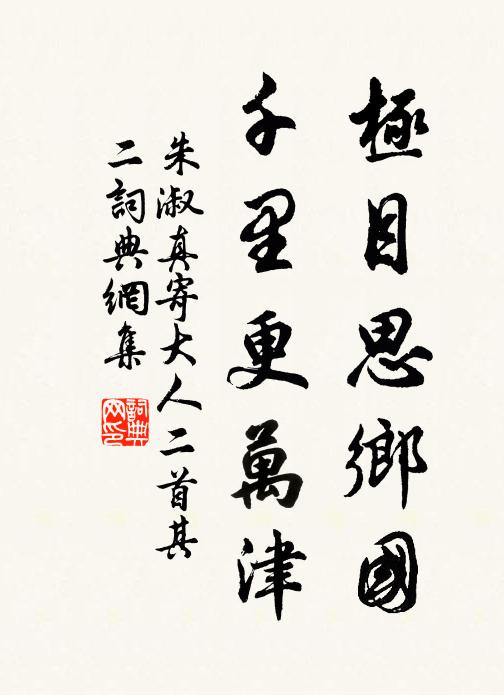 極目思鄉國
千里更萬津
朱淑真寄大人二首其
二詞典網集
詞典
网印